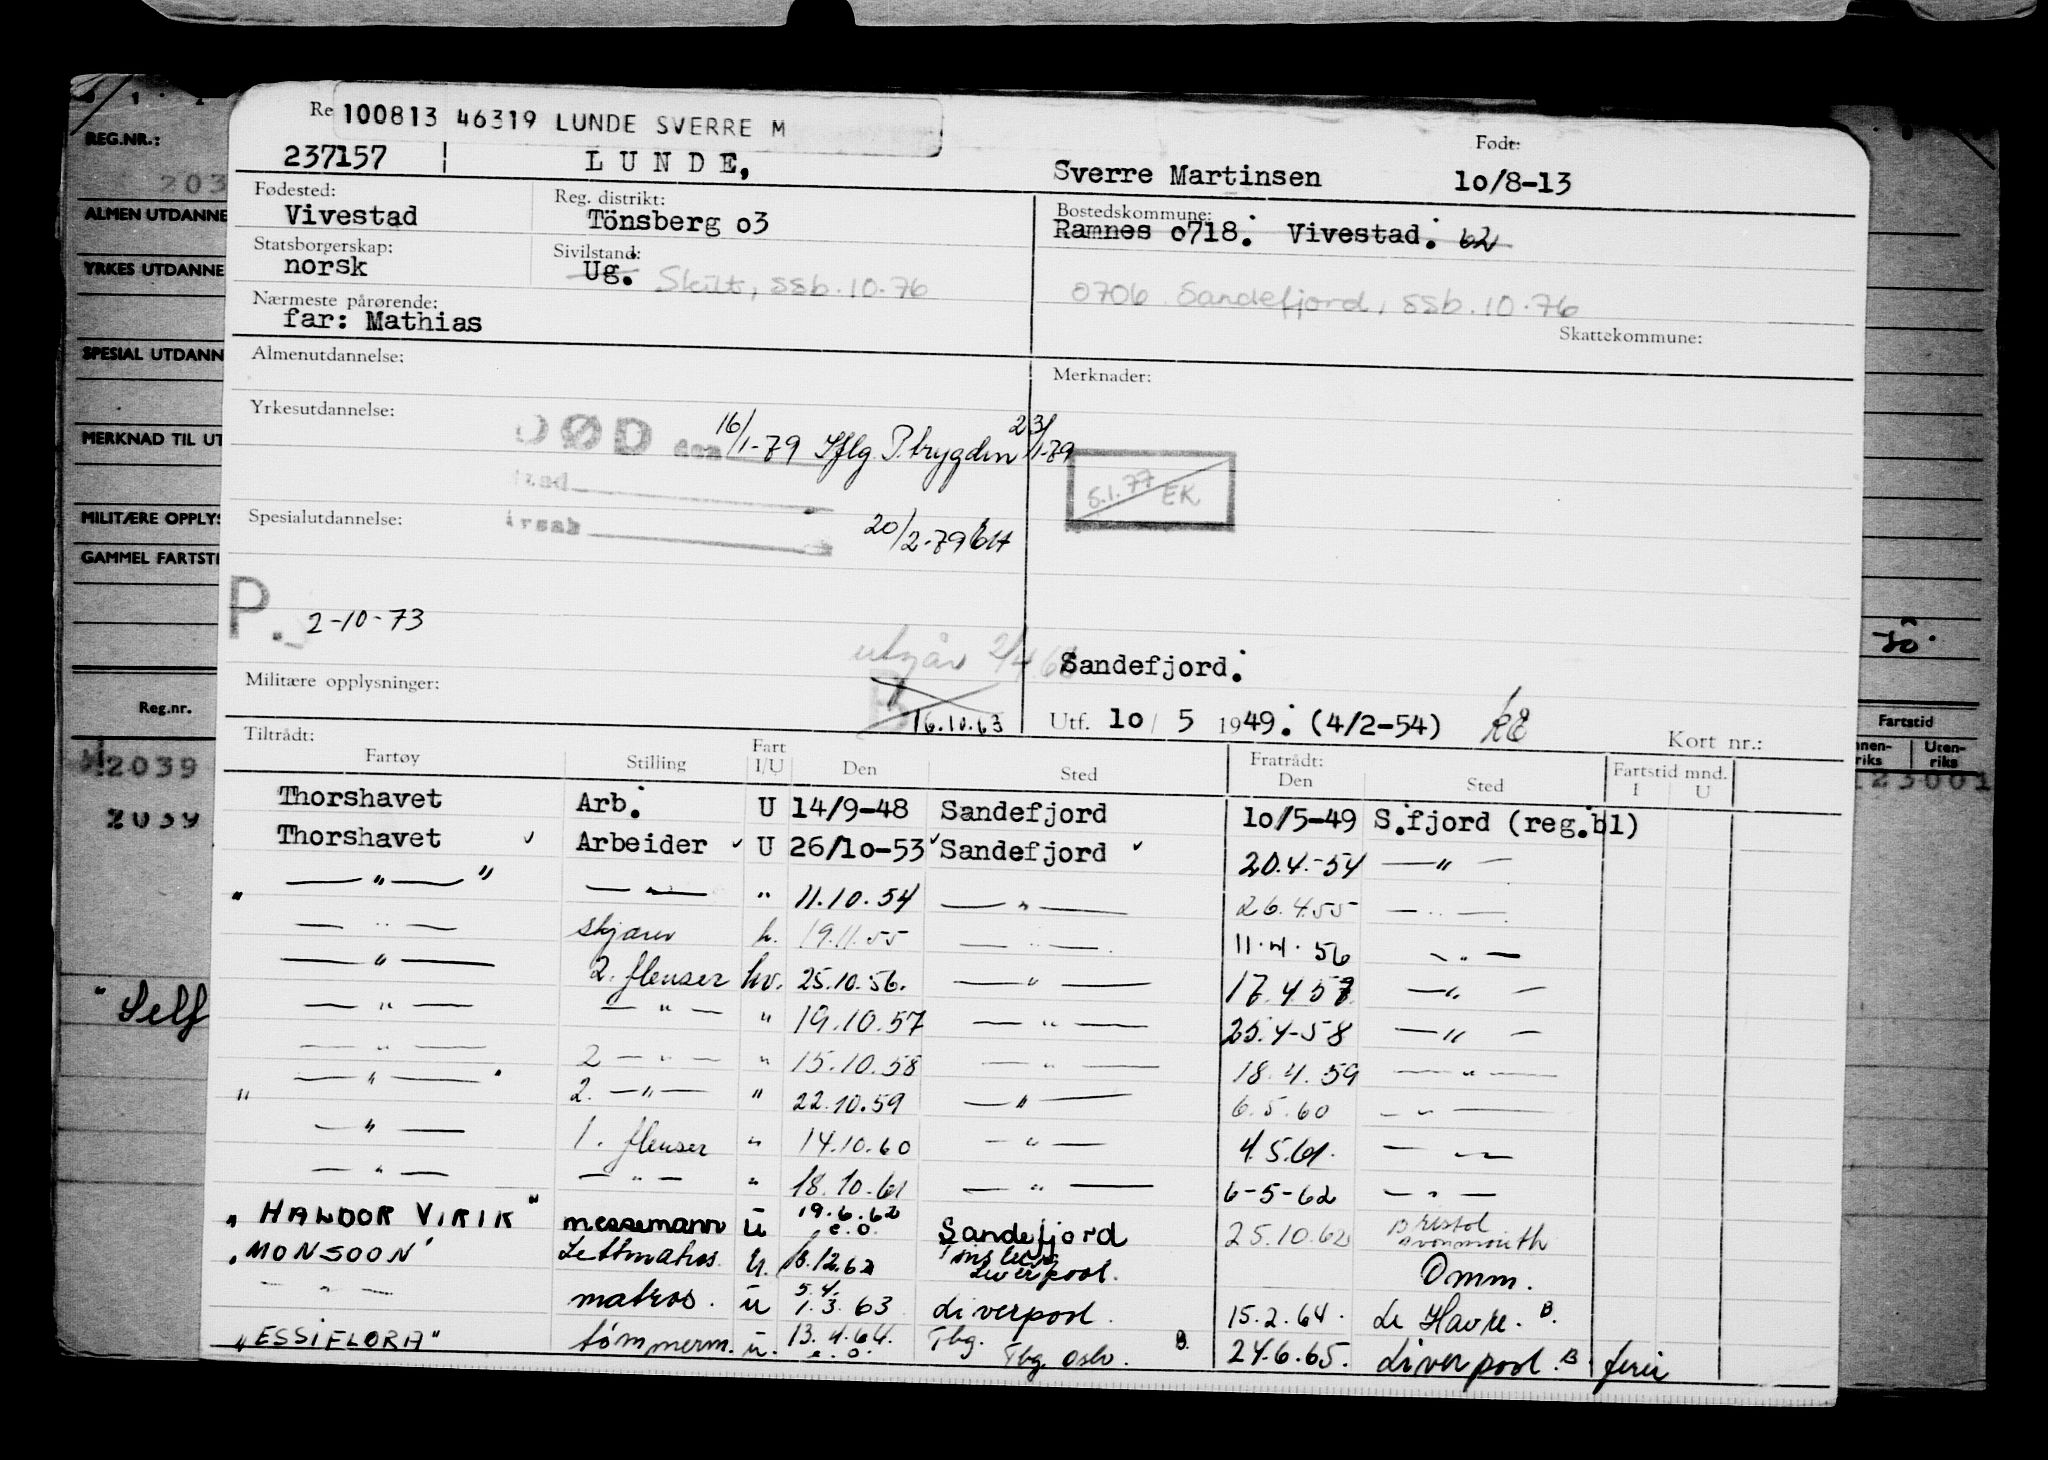 Re 100813 46319 LUNDE SVERRE M
Født:
237157 LUNDE, Sverre Martinsen 10/8-13
Fødested: Vivestad
Reg. distrikt: Tönsberg 03
Bostedskommune: Ramnes 0718. Vivestad. 62
Statsborgerskap: norsk
Sivilstand: Ug. Skilt, ssb. 10.76
0706 Sandefjord, ssb. 10.76
Nærmeste pårørende: far: Mathias
Skattekommune:
Almenutdannelse:
Merknader:
Yrkesutdannelse:
DØD den 16/1-79 Iflg. P. trygden 23/1-79
5.1.77 EK
Spesialutdannelse:
årsak
20/2-79
P. 2-10-73
utgår 2/4 6
Sandefjord.
Militære opplysninger:
B 16.10.63
Utf. 10/ 5 1949. (4/2-54)
Kort nr.:
Tiltrådt:
Fratrådt:
Fartstid mnd.
Fartøy Stilling Fart I/U Den Sted Den Sted I U
Thorshavet Arb. U 14/9-48 Sandefjord 10/5-49 S.fjord (reg.bl)
Thorshavet Arbeider U 26/10-53 Sandefjord 20.4.-54 — " —
" — " — " — " — " 11.10.54 — " — 26.4.55 — " —
— " — skjærer h. 19.11.55 — " — 11.4.56 — " —
— " — 2. flenser hv. 25.10.56. — " — 17.4.57 — " —
— " — — " — " 19.10.57 — " — 25.4-58 — " —
— " — 2 — " — " 15.10.58 — " — 18.4.59 — " —
" — " — 2. — " — " 22.10.59 — " — 6.5.60 — " —
— " — 1. flenser " 14.10.60 — " — 4.5.61. — " —
— " — — " — " 18.10.61 — " — 6-5-62 — " —
"HANDOR VIRIK" messemann ü 19.6.62 e.o. Sandefjord 25.10.62 Bristol Avonmouth
"MONSOON" Lettmatros. U. 18.12.62 Liverpool. Omm.
— " — matros. ü 5.4. 1.3.63 Liverpool. 15.2.64. Le Havre. B.
"ESSI FLORA" tømmerm. ü. 13.4.64. e.o. Tbg. Tbg. Oslo. B. 24.6.65. Liverpool. B. ferie
REG.NR.:
203
ALMEN UTDANNE
YRKES UTDANNE
SPESIAL UTDANN
MERKNAD TIL UT
MILITÆRE OPPLYS
GAMMEL FARTSTI
Reg.nr.
2039
2039
"Self
Fartstid
nnen-riks
Uten-riks
23001